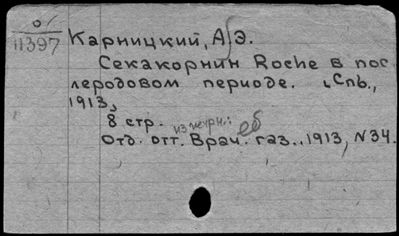 0
11397
Карницкий, А. Э.
Секакорнин Roche в пос
леродовом периоде. Спб.,
1913,
8 стр.
из журн.:
Отд. отт. Врач. газ., 1913, N34.